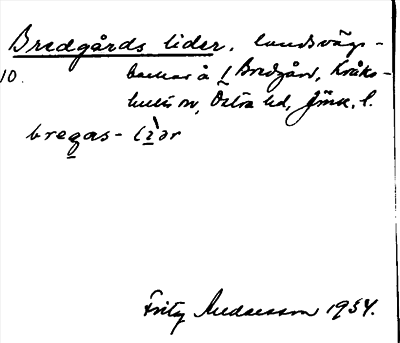 Bredgårds lider, landsvägs-
10. backar å 1 Bredgård, Kråks-
hults sn, Östra hd, Jönk. l.
bregas- liər
Fritz Andersson 1954.